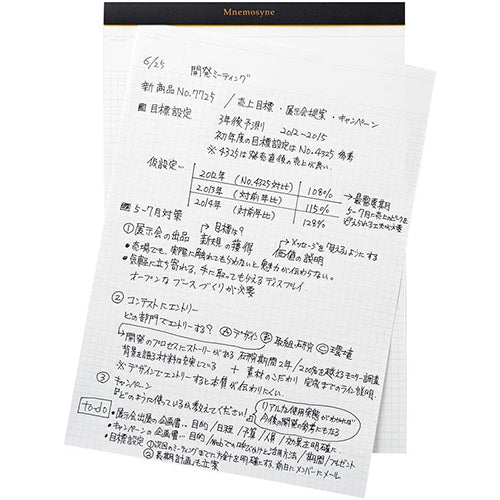 Mnemosyne
6/25
開発ミーティング
新商品No.7725 / 売上目標・展示会提案・キャンペーン
目標設定 3年後予測 2012-2015
初年度の目標設定はNo.4325参考
※4325は発売直後の売上が良い。
仮設定〜
2012年 (No.4325対比) 108%
2013年 (対前年比) 115%
2014年 (対前年比) 128%
→最需要期
5-7月に売上のピークを
5-7月対策
→目標は? →メッセージを「伝える」ようにする
①展示会の出品 新規の獲得 価値の説明
・売場でも、実際に触れてもらわないと魅力が伝わらない。
・気軽に立ち寄れる、手に取ってもらえるディスプレイ
オープンなブースづくりが必要
②コンテストにエントリー
どの部門でエントリーする? Ⓐデザイン Ⓑ取組み研究 Ⓒ環境
→開発のプロセスにストーリーがある 研究期間2年/200%を越えるモニター調査
背景を語る材料は充実している + 素材のこだわり 完成までのライン説明.
※デザインでエントリーすると本質が伝わりにくい.
③キャンペーン
"どのように使っているか教えてください!"
リアルな使用実態がわかれば
今後の開発の参考にもなる
to-do
・展示会出展の企画書… 目的/日程/予算/人員/効果を明確に
・キャンペーンの企画書… 目的/Webでの呼びかけと活用方法/期間/プレゼント
・目標設定 ①次回のミーティングまでに方針を明確にする.前日にメンバーにメール
②長期計画も立案